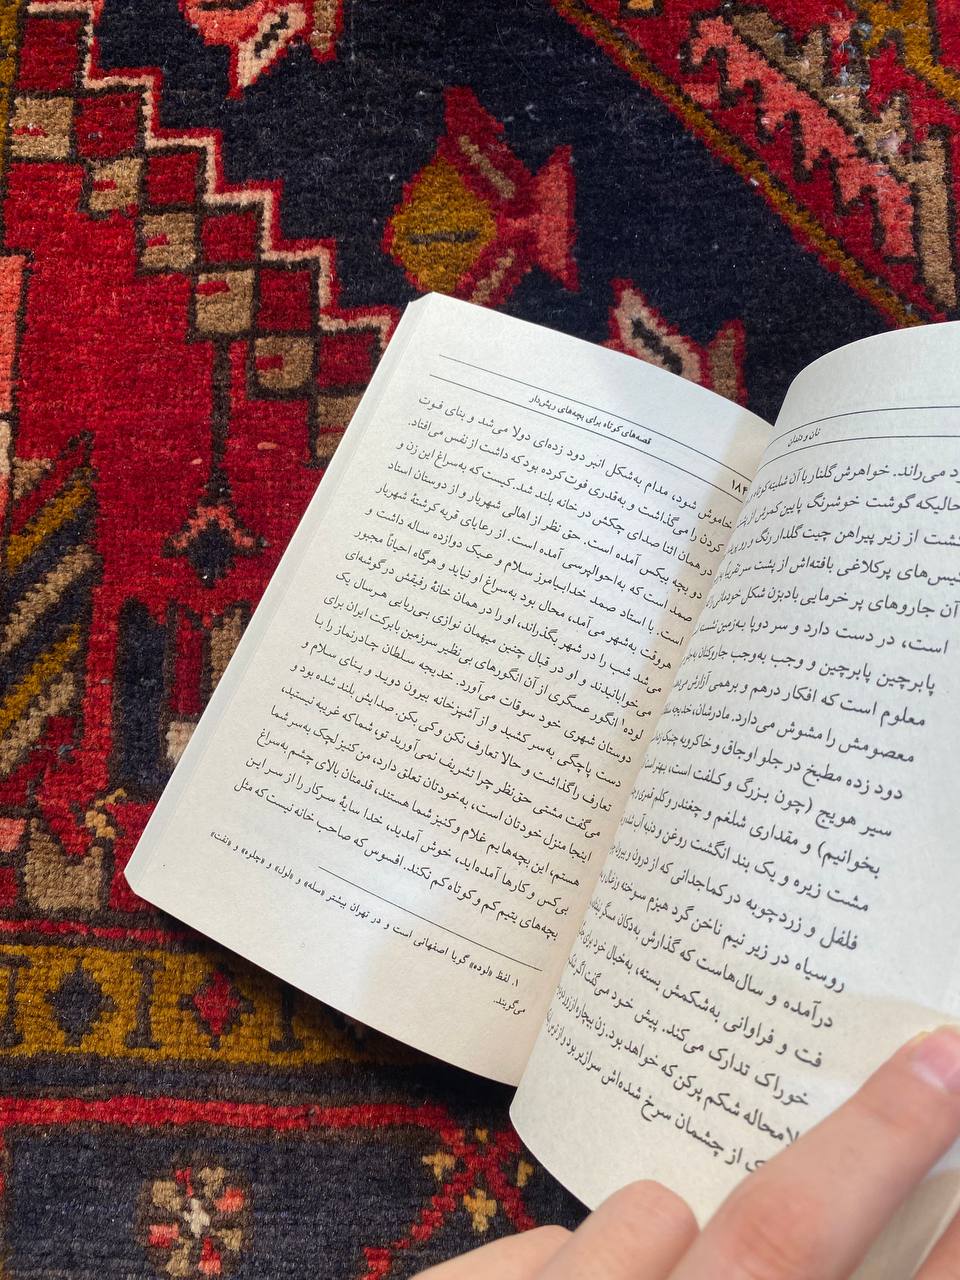 نان و دندان
می‌راند. خواهرش گلنار با آن شلیته کوتاه
حالیکه گوشت خوشرنگ پایین کمرش از پشت
از زیر پیراهن چیت گلدار رنگ و رو
گیس‌های پرکلاغی بافته‌اش از پشت سر تقریبا
آن جاروهای پر خرمایی بادبزن شکل خودمانی
است، در دست دارد و سر دو پا به‌زمین نشسته
پابرچین پابرچین و وجب به‌وجب جاروکنان
معلوم است که افکار درهم و برهمی آزارش می‌دهد
معصومش را مشوش می‌دارد. مادرشان، خدیجه
دود زده مطبخ در جلو اوجاق و خاکروبه
سیر هویج (چون بزرگ و کلفت است، بهتر است
بخوانیم) و مقداری شلغم و چغندر و کلم قمری
مشت زیره و یک بند انگشت روغن و دنبه آب شده
فلفل و زردچوبه در کماجدانی که از درون و بیرون
روسیاه در زیر نیم ناخن گرد هیزم سرخته زغال
درآمده و سال‌هاست که گذارش به‌دکان مسگر نیفتاده
و فراوانی به‌شکمش بسته، به‌خیال خود برای
خوراک تدارک می‌کند. پیش خود می‌گفت اگر
لامحاله شکم پرکن که خواهد بود. زن بیچاره از زور دود
از چشمان سرخ شده‌اش سرازیر بود و از ترس
۱۸۴ قصه‌های کوتاه برای بچه‌های ریش‌دار
خاموش شود، مدام به‌شکل انیر دود زده‌ای دولا می‌شد و بنای فوت
کردن را می‌گذاشت و به‌قدری فوت کرده بود که داشت از نفس می‌افتاد.
در همان اثنا صدای چکش در خانه بلند شد. کیست که به‌سراغ این زن و
دو بچه بیکس آمده است. حق نظر از اهالی شهریار و از دوستان استاد
صمد است که به‌احوالپرسی آمده است. از رعایای قریه کرشتهٔ شهریار
است. با استاد صمد خدابیامرز سلام و علیک دوازده ساله داشت و
هروقت به‌شهر می‌آمد، محال بود به‌سراغ او نیاید و هرگاه احیاناً مجبور
می‌شد شب را در شهر بگذراند، او را در همان خانهٔ رفیقش در گوشه‌ای
می‌خوابانیدند و او در قبال چنین میهمان نوازی بی‌ریایی هرسال یک
لوده۱ انگور عسگری از آن انگورهای بی‌نظیر سرزمین بابرکت ایران برای
دوستان شهری خود سوقات می‌آورد. خدیجه سلطان چادرنماز را با
دست پاچگی به‌سر کشید و از آشپزخانه بیرون دوید و بنای سلام و
تعارف را گذاشت و حالا تعارف نکن و کی بکن. صدایش بلند شده بود و
می‌گفت مشتی حق‌نظر چرا تشریف نمی‌آورید تو، شما که غریبه نیستید،
اینجا منزل خودتان است، به‌خودتان تعلق دارد، من کنیز لچک به‌سر شما
هستم، این بچه‌ها هم غلام و کنیز شما هستند، قدمتان بالای چشم. به‌سراغ
بی‌کس و کارها آمده‌اید، خوش آمدید، خدا سایهٔ سرکار را از سر این
بچه‌های یتیم کم و کوتاه کم نکند. افسوس که صاحب خانه نیست که مثل
۱. لفظ «لوده» گویا اصفهانی است و در تهران بیشتر «سله» و «لول» و «جلوه» و «تفت»
می‌گویند.